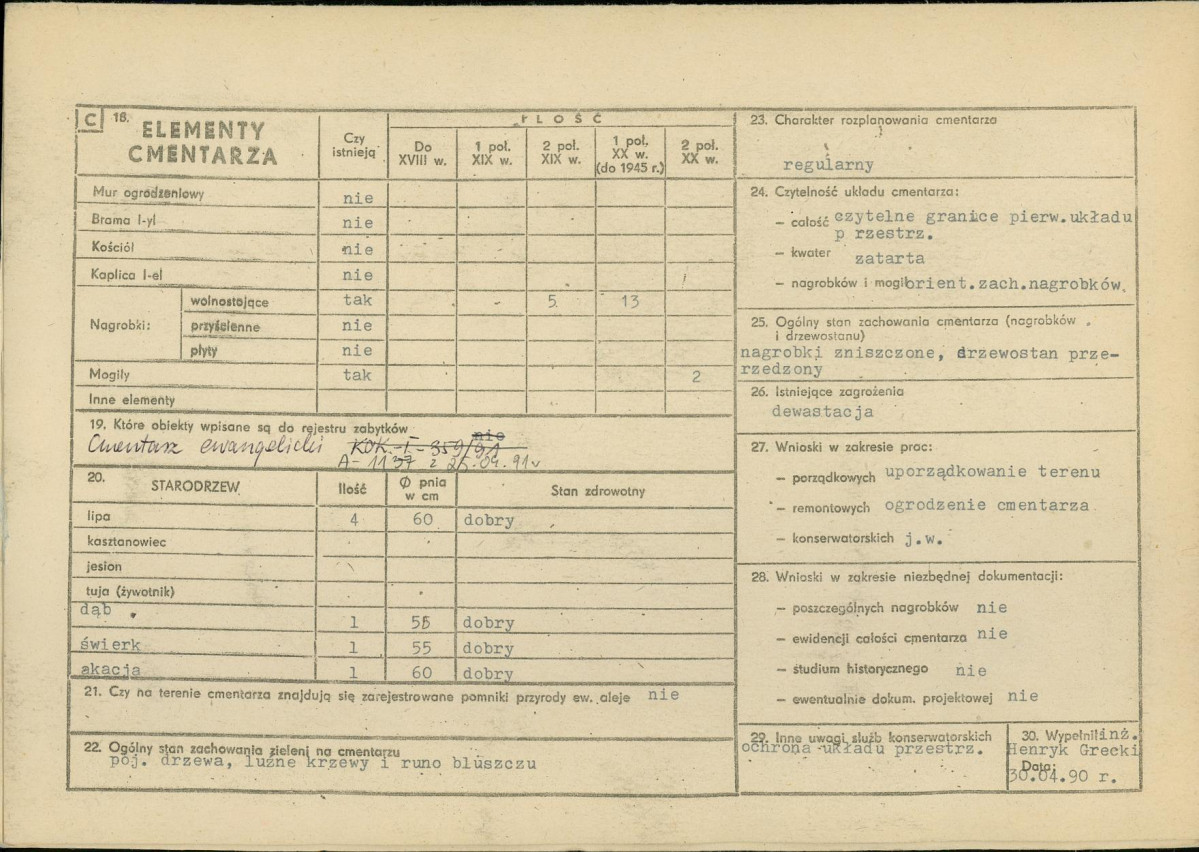 C 18. ELEMENTY CMENTARZA
Czy istnieją
IŁOŚĆ
Do XVIII w.
1 poł. XIX w.
2 poł. XIX w.
1 poł. XX w. (do 1945 r.)
2 poł. XX w.
Mur ogrodzeniowy nie
Brama I-yl nie
Kościół nie
Kaplica I-el nie
Nagrobki:
wolnostojące tak - 5 13
przyścienne nie
płyty nie
Mogiły tak 2
Inne elementy
19. Które obiekty wpisane są do rejestru zabytków
nie
Cmentarz ewangelicki KOK-I-359/91
A-1137 z 25.04.91
20. STARODRZEW Ilość Ø pnia w cm Stan zdrowotny
lipa 4 60 dobry
kasztanowiec
jesion
tuja (żywotnik)
dąb 1 55 dobry
świerk 1 55 dobry
akacja 1 60 dobry
21. Czy na terenie cmentarza znajdują się zarejestrowane pomniki przyrody ew. aleje nie
22. Ogólny stan zachowania zieleni na cmentarzu
poj. drzewa, luźne krzewy i runo bluszczu
23. Charakter rozplanowania cmentarza
regularny
24. Czytelność układu cmentarza:
- całość czytelne granice pierw.układu
p rzestrz.
- kwater zatarta
- nagrobków i mogił orient.zach.nagrobków.
25. Ogólny stan zachowania cmentarza (nagrobków
i drzewostanu)
nagrobki zniszczone, drzewostan prze-
rzedzony
26. Istniejące zagrożenia
dewastacja
27. Wnioski w zakresie prac:
- porządkowych uporządkowanie terenu
- remontowych ogrodzenie cmentarza
- konserwatorskich j.w.
28. Wnioski w zakresie niezbędnej dokumentacji:
- poszczególnych nagrobków nie
- ewidencji całości cmentarza nie
- studium historycznego nie
- ewentualnie dokum. projektowej nie
29. Inne uwagi służb konserwatorskich
ochrona układu przestrz.
30. Wypełnił inż.
Henryk Grecki
Data:
30.04.90 r.